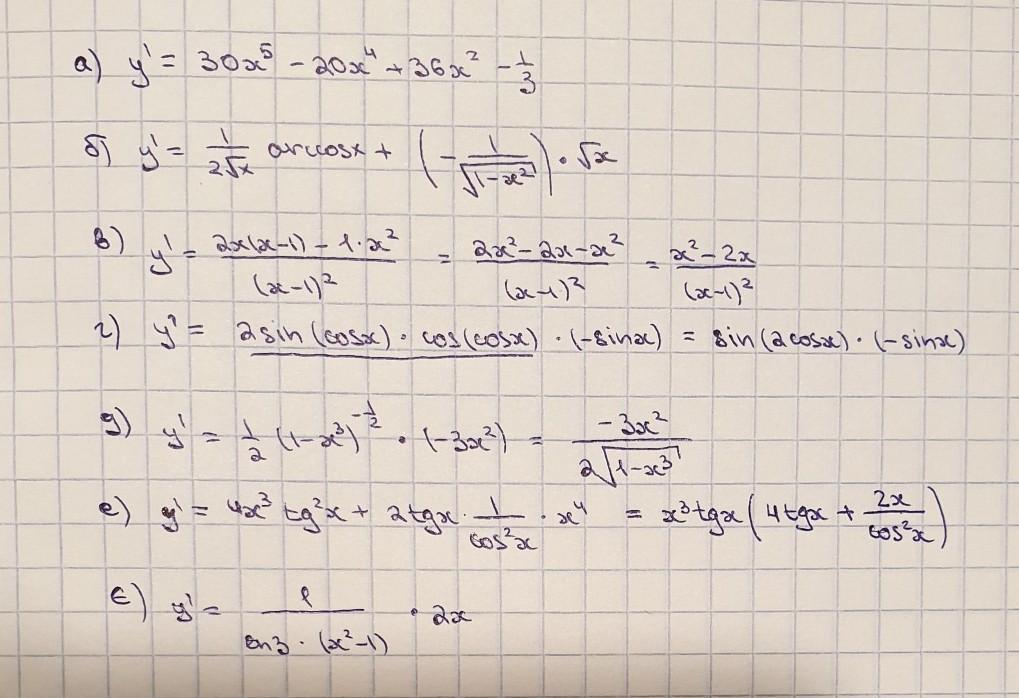 а) y' = 30x⁵ - 20x⁴ + 36x² - 1/3
б) y' = 1/(2√x) arccosx + (-1/√(1-x²)) · √x
в) y' = (2x(x-1) - 1·x²)/(x-1)² = (2x² - 2x - x²)/(x-1)² = (x² - 2x)/(x-1)²
г) y' = 2sin(cosx) · cos(cosx) · (-sinx) = sin(2cosx) · (-sinx)
д) y' = 1/2 (1-x³)^(-1/2) · (-3x²) = -3x²/(2√(1-x³))
е) y' = 4x³ tg²x + 2tgx · 1/cos²x · x⁴ = x³tgx(4tgx + 2x/cos²x)
є) y' = 1/(ln3 · (x²-1)) · 2x